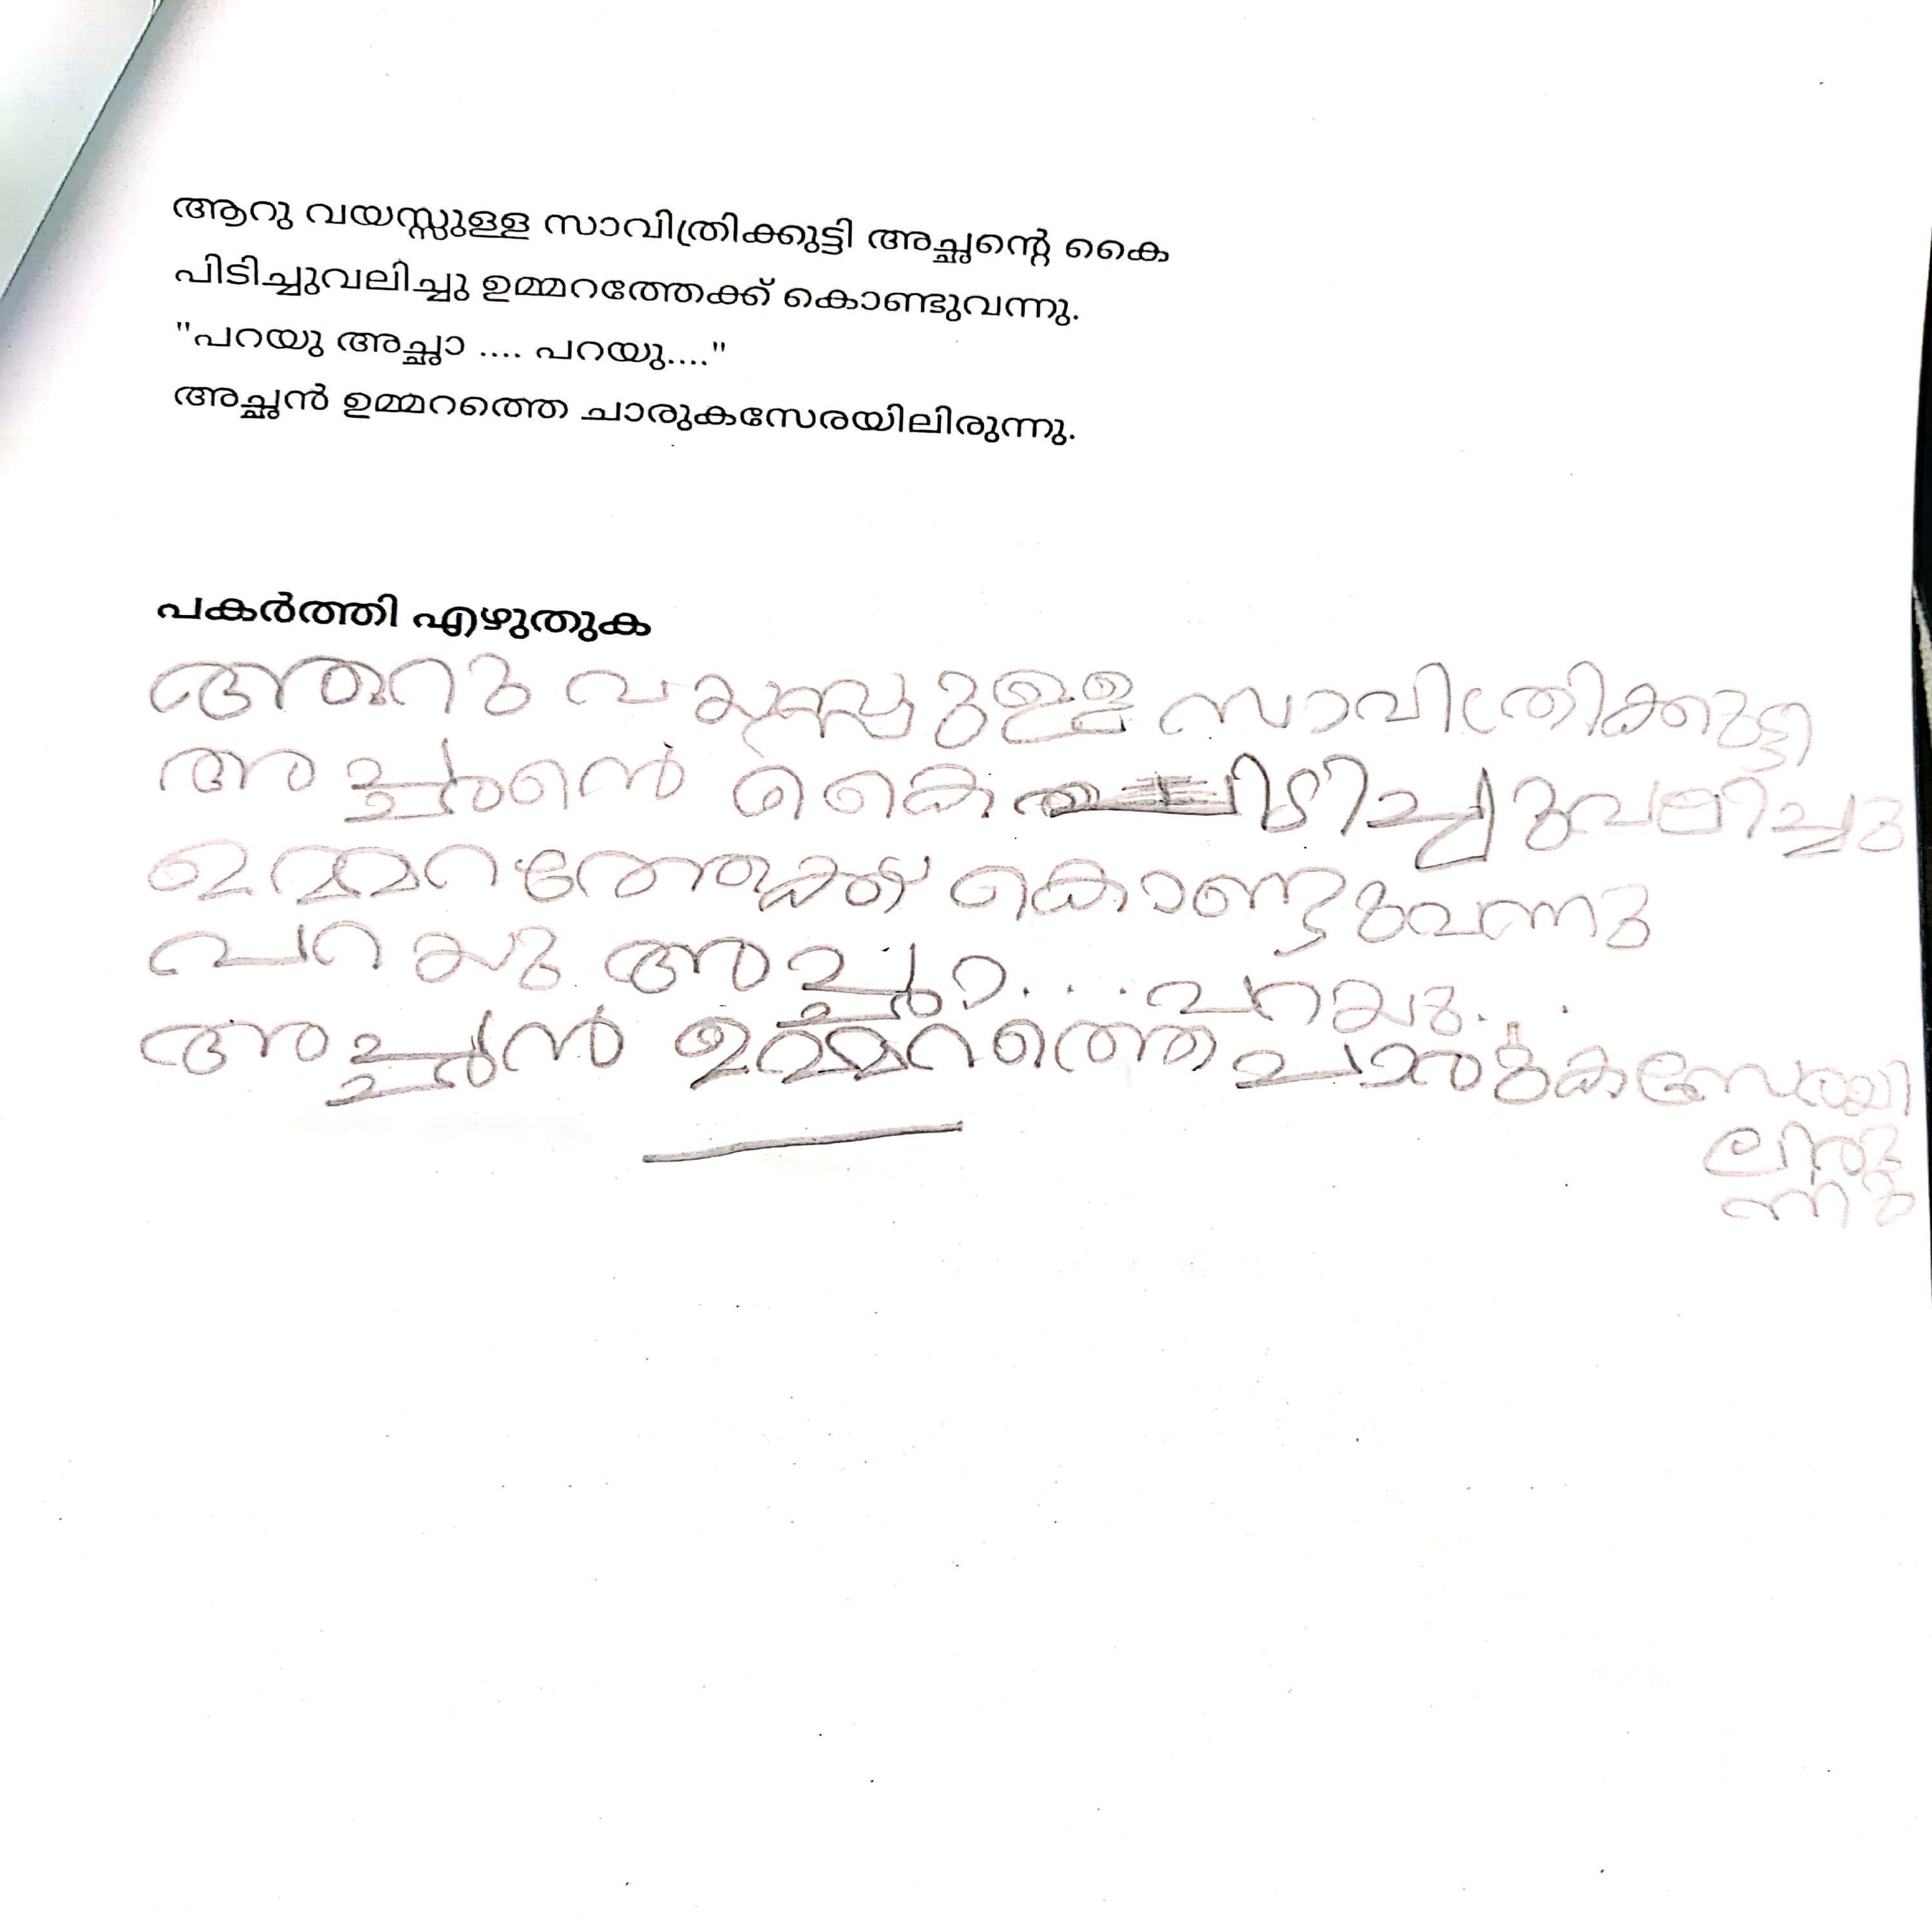 ആറു വയസ്സുള്ള സാവിത്രിക്കുട്ടി അച്ഛന്റെ കൈ
പിടിച്ചുവലിച്ചു ഉമ്മറത്തേക്ക് കൊണ്ടുവന്നു.
"പറയു അച്ഛാ .... പറയു...."
അച്ഛൻ ഉമ്മറത്തെ ചാരുകസേരയിലിരുന്നു.
പകർത്തി എഴുതുക
ആറു വയസ്സുള്ള സാവിത്രിക്കുട്ടി
കൈ പിടിച്ചുവലിച്ചു
ഉമ്മറത്തേക്ക് കൊണ്ടുവന്നു
പറയു അച്ഛാ.... പറയു....
അച്ഛൻ ഉമ്മറത്തെ ചാരുകസേരയി
ലിരു
ന്നു